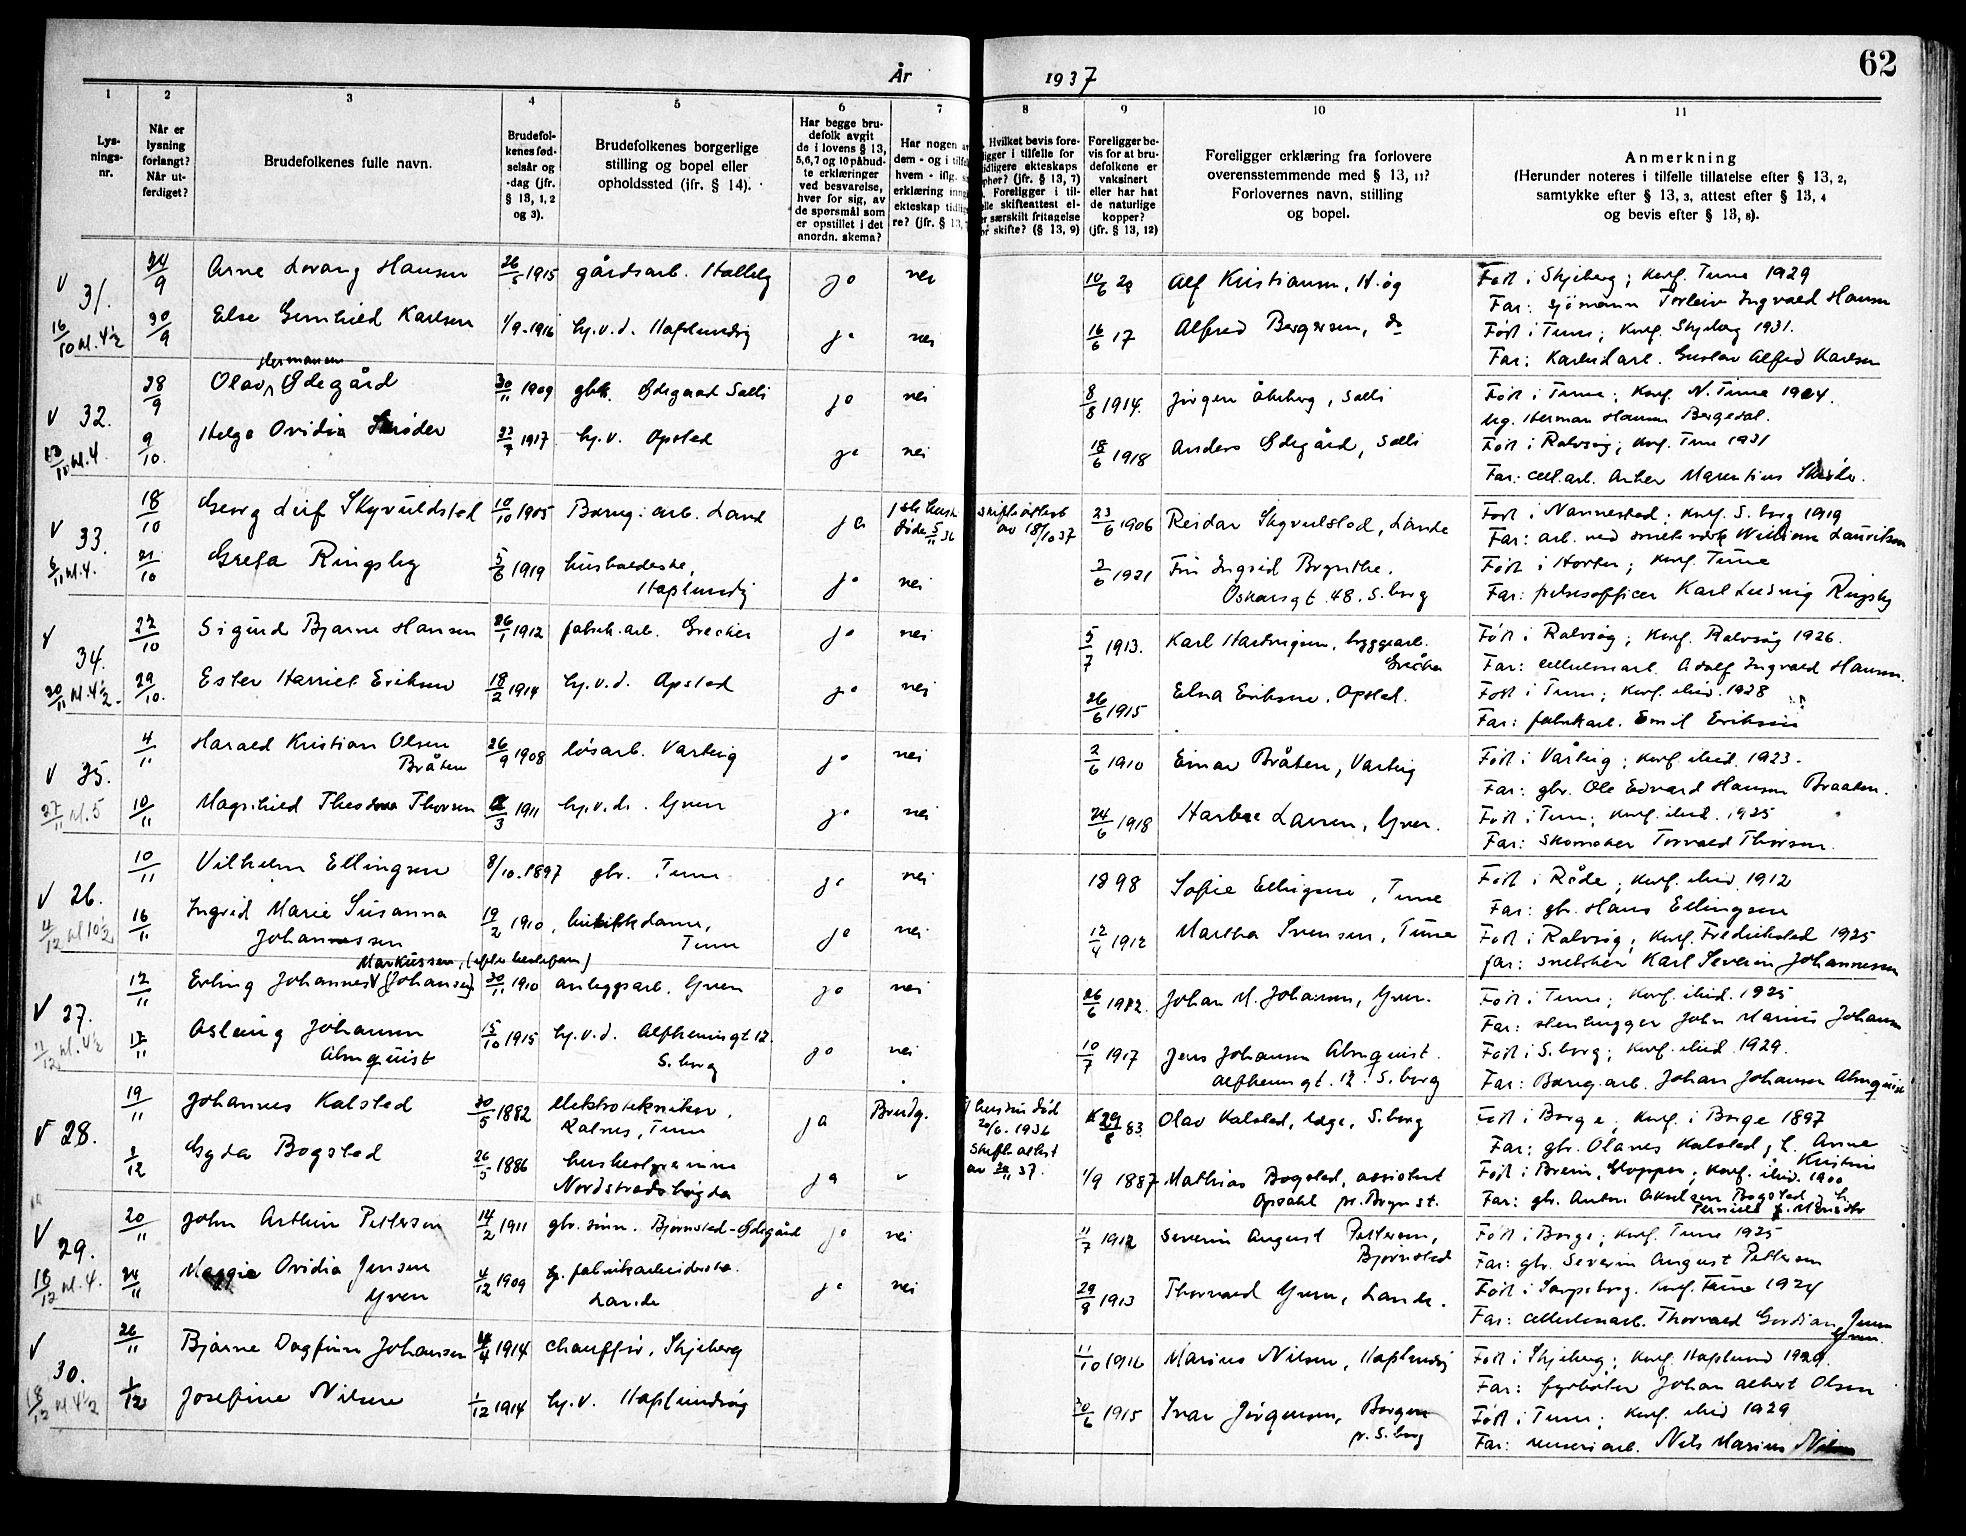 År 1937
62
1
Lys-
nings-
nr.
2
Når er
lysning
forlangt?
Når ut-
ferdiget?
3
Brudefolkenes fulle navn.
4
Brudefol-
kenes fød-
selsår og
-dag (jfr.
§ 13, 1, 2
og 3).
5
Brudefolkenes borgerlige
stilling og bopel eller
opholdssted (jfr. § 14).
6
Har begge bru-
defolk avgit
de i lovens § 13,
5,6,7 og 10 påbud-
te erklæringer
ved besvarelse,
hver for sig, av
de spørsmål som
er opstillet i det
anordn. skema?
7
Har nogen
dem - og i tilf
hvem - iflg.
erklæring inn
ekteskap tidlig
re? (jfr. § 13,
8
Hvilket bevis fore-
ligger i tilfelle for
tidligere ekteskaps
opher? (jfr. § 13, 7)
Foreligger i til-
elle skifteattest el-
er særskilt fritagelse
or skifte? (§ 13, 9)
9
Foreligger be-
vis for at bru-
defolkene er
vaksinert
eller har hat
de naturlige
kopper?
(jfr. § 13, 12)
10
Foreligger erklæring fra forlovere
overensstemmende med § 13, 11?
Forlovernes navn, stilling
og bopel.
11
Anmerkning
(Herunder noteres i tilfelle tillatelse efter § 13, 2,
samtykke efter § 13, 3, attest efter § 13, 4
og bevis efter § 13, 8).
V 31. 24/9 Arne Lovang Hansen 26/5 1915 gårdsarb. ja nei 10/6 Alf Kristiansen, Født i Skjeberg; konf. Tune 1929
Far: sjømann Torleiv Ingvald Hansen
16/10 kl. 4½ 30/9 Else Gunhild Karlsen 1/9-1916 hj.v.d. Hafslundsøy ja nei 16/6 17 Alfred Bergersen, do Født i Tune; konf. Skjeberg 1931.
Far: Gustav Alfred Karlsen
V 32. 28/9 Olav Hermansen Ødegård 30/11 1909 gbr. Ødegaard Solli ja nei 8/8 1914. Jørgen Solli Født i Tune; konf. N. Tune 1924.
Herman Hansen
kl. 4. 9/10. Helga Ovidia Skrøder 1917 hj.v. Opsted ja nei 18/6 1918 Anders Ødegård, Solli Født i Rolvsøy; konf. Tune 1931
Far: cell.arb. Marentius
V 33. 18/10 Georg Leif Skyvulstad 10/10 1905 Borreg. arb. Lande ja død 5/11 36 skifteattest av 18/10 37 23/6 1906 Reidar Skyvulstad, Lande Født i Nannestad; konf. S.borg 1919
Far: arb. ved smelteverk William Lauritsen
6/11 kl. 4. 21/10 Greta Ringsby 5/6 1919 husholderske, Hafslundsøy ja nei 2/6 1921 Ingrid
Oskarsgt. 48. S.borg Født i Horten; konf. Tune
Far: Karl Ludvig Ringsby
V 34. 22/10 Sigurd Bjarne Hansen 26/1 1912 fabrik.arb. Greåker ja nei 5/7 1913. Karl Hartvigsen, byggearb.
Greåker Født i Rolvsøy; konf. Rolvsøy 1926.
Far: cellulosearb. Adolf Ingvald Hansen.
20/11 kl. 4½. 29/10. Ester Harriet Eriksen 18/2 1914 hj.v.d. Opsted ja nei 26/6 1915 Elna Eriksen, Opsted. Født i Tune; konf. ibid. 1928
Far: fabrikarb. Emil Eriksen
V 35. 4/11 Harald Kristian Olsen
Bråten 26/9 1908 løsarb. Varteig ja nei 2/6 1910 Einar Bråten, Varteig Født i Varteig; konf. ibid. 1923.
Far: gbr. Ole Edvard Hansen Braaten.
27/11 kl. 5 10/11 Magnhild Theodora Thorsen 1911 hj.v.d. Yven ja nei 24/6 1918 Larsen, Yven. Født i Tune; konf. ibid. 1925
Far: skomaker Torvald Thorsen.
V 26. 10/11 Vilhelm Ellingsen 8/10.1897 gbr. Tune ja nei 1898 Sofie Ellingsen, Tune Født i Råde; konf. ibid. 1912
Far: gbr. Hans Ellingsen
4/12 kl 10½ 16/11 Ingrid Marie Susanna
Johannessen 19/2 1910, Tune ja nei 12/4 1912 Martha Svensen, Tune Født i Rolvsøy; konf. Fredrikstad 1925
Far: snekker Karl Severin Johannessen
V 27. 12/11 Markussen, (efter bestefar)
Erling Johannes V [Johansen] 30/11 1910 anleggsarb. Yven ja nei 26/6 1912. Johan M. Johansen, Yven. Født i Tune; konf. ibid. 1925
Far: stenhugger John Marius Johansen
11/12 kl. 4½ 17/11 Aslaug Johansen
Almquist 15/10 1915 hj.v.d. Alfheimgt 12.
S.borg ja nei 10/7 1917 Jens Johansen Almquist.
Alfheimgt. 12. S.borg Født i S.borg; konf. ibid. 1929.
Far: Borreg.arb. Johan Johansen Almquist
V 28. 19/11 Johannes Kalstad 30/5 1882 elektrotekniker,
Kalnes, Tune ja Brudg. hustru død
20/6. 1936
skifteattest
av 37. 29/8 83. Olav Kalstad, læge, S.borg Født i Borge; konf. i Borge 1897
Far: gbr. Olaves Kalstad, h. Anne
Kristine
3/12 Gyda Bogstad 26/5 1886 husbestyrerinne
Nordstrandshøgda ja 1/9 1887 Mathias Bogstad, assistent
Opdahl pr. Bryn st. Født i Breim, Gloppen; konf. ibid. 1900
Far: gbr. Anton Akselsen Bogstad
V 29. 20/11 John Arthur Pettersen 14/2 1911 gbr. sønn. Bjørnstad-Ødegård ja nei 11/7 1912 Severin August Pettersen,
Bjørnstad Født i Borge; konf. Tune 1925
Far: gbr. Severin August Pettersen
18/12 kl. 4. 24/11 Maggie Ovidia Jensen
Yven 4/12 1909 fabrikarbeiderske.
Lande ja nei 29/8 1913 Thorvald Yven, Lande. Født i Sarpsborg. konf. Tune 1924
Far: cellulosearb. Thorvald Gordian Jensen
Yven.
V 30. 26/11 Bjarne Dagfinn Johansen 1914 chauffør, Skjeberg 11/10 1916 Marius Nilsen, Hafslundsøy Født i Skjeberg; konf. Hafslund 1929.
Far: fyrbøter Johan Albert Olsen
18/12 kl. 4½ 1/12 Josefine Nilsen 1/12 1914 hj.v. Hafslundsøy 30/6 1915 Ivar Jørgensen, Borgen
pr. S.borg Født i Tune; konf. ibid 1929
Far: Nils Marius Nilsen